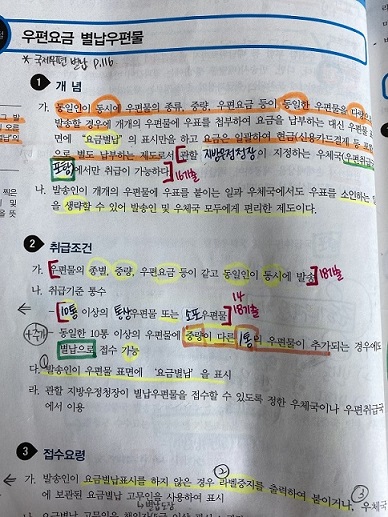 우편요금 별납우편물
* 국제우편 별납 P.116
1 개 념
가. 동일인이 동시에 우편물의 종류, 중량, 우편요금 등이 동일한 우편물을 다량으
발송할 경우에 개개의 우편물에 우표를 첩부하여 요금을 납부하는 대신 우편물 표
면에 "요금별납"의 표시만을 하고 요금은 일괄하여 현금(신용카드결제 등 포함
으로 별도 납부하는 제도로서 관할 지방우정청장이 지정하는 우체국(우편취급국
포함)에서만 취급이 가능하다. 16기출
나. 발송인이 개개의 우편물에 우표를 붙이는 일과 우체국에서도 우표를 소인하는
을 생략할 수 있어 발송인 및 우체국 모두에게 편리한 제도이다.
2 취급조건
가. 우편물의 종별, 중량, 우편요금 등이 같고 동일인이 동시에 발송 18기출
나. 취급기준 통수
14
- 10통 이상의 통상우편물 또는 소포우편물 18기출
- 동일한 10통 이상의 우편물에 중량이 다른 1통의 우편물이 추가되는 경우에도
별납으로 접수 가능
① 다. 발송인이 우편물 표면에 '요금별납'을 표시
라. 관할 지방우정청장이 별납우편물을 접수할 수 있도록 정한 우체국이나 우편취급국
에서 이용
3 접수요령
②
가. 발송인이 요금별납표시를 하지 않은 경우 라벨증지를 출력하여 붙이거나, 우체국
③
에 보관된 요금별납 고무인을 사용하여 표시
별납도장